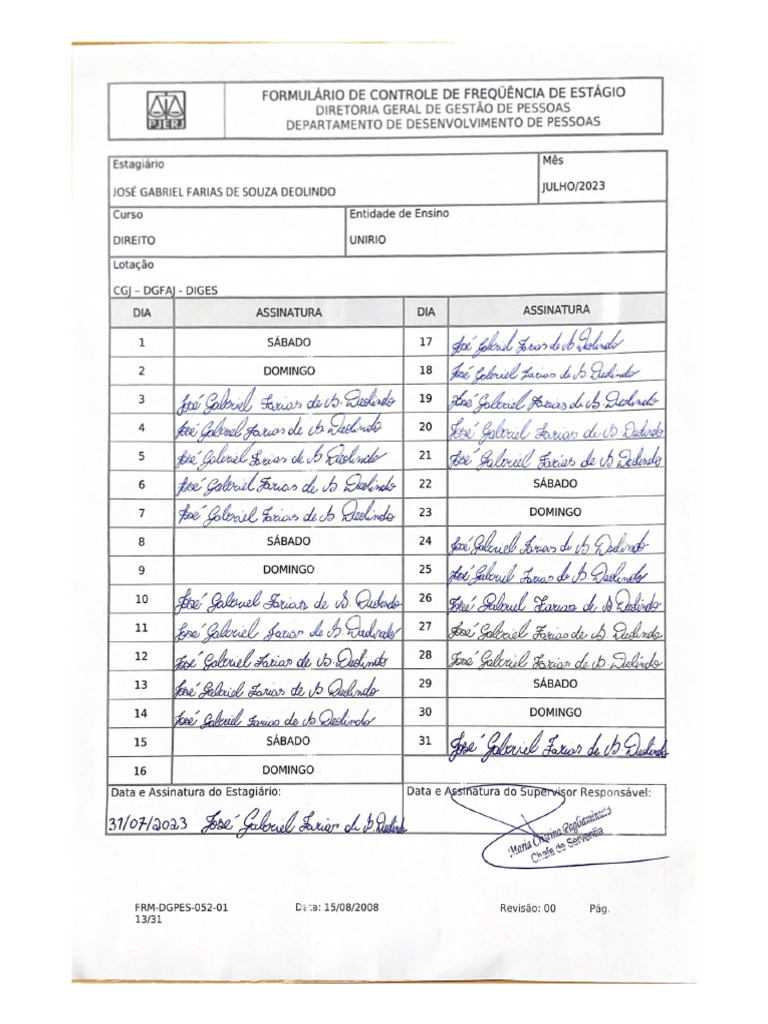 PJERJ
FORMULÁRIO DE CONTROLE DE FREQÜÊNCIA DE ESTÁGIO
DIRETORIA GERAL DE GESTÃO DE PESSOAS
DEPARTAMENTO DE DESENVOLVIMENTO DE PESSOAS
Estagiário Mês
JOSÉ GABRIEL FARIAS DE SOUZA DEOLINDO JULHO/2023
Curso Entidade de Ensino
DIREITO UNIRIO
Lotação
CGJ – DGFAJ - DIGES
DIA ASSINATURA DIA ASSINATURA
1 SÁBADO 17 José Gabriel Farias de S Deolindo
2 DOMINGO 18 José Gabriel Farias de S Deolindo
3 José Gabriel Farias de S Deolindo 19 José Gabriel Farias de S Deolindo
4 José Gabriel Farias de S Deolindo 20 José Gabriel Farias de S Deolindo
5 José Gabriel Farias de S Deolindo 21 José Gabriel Farias de S Deolindo
6 José Gabriel Farias de S Deolindo 22 SÁBADO
7 José Gabriel Farias de S Deolindo 23 DOMINGO
8 SÁBADO 24 José Gabriel Farias de S Deolindo
9 DOMINGO 25 José Gabriel Farias de S Deolindo
10 José Gabriel Farias de S Deolindo 26 José Gabriel Farias de S Deolindo
11 José Gabriel Farias de S Deolindo 27 José Gabriel Farias de S Deolindo
12 José Gabriel Farias de S Deolindo 28 José Gabriel Farias de S Deolindo
13 José Gabriel Farias de S Deolindo 29 SÁBADO
14 José Gabriel Farias de S Deolindo 30 DOMINGO
15 SÁBADO 31 José Gabriel Farias de S Deolindo
16 DOMINGO
Data e Assinatura do Estagiário: Data e Assinatura do Supervisor Responsável:
31/07/2023 José Gabriel Farias de S Deolindo
Maria Cristina
Chefe de Serventia
FRM-DGPES-052-01 Data: 15/08/2008 Revisão: 00 Pág.
13/31